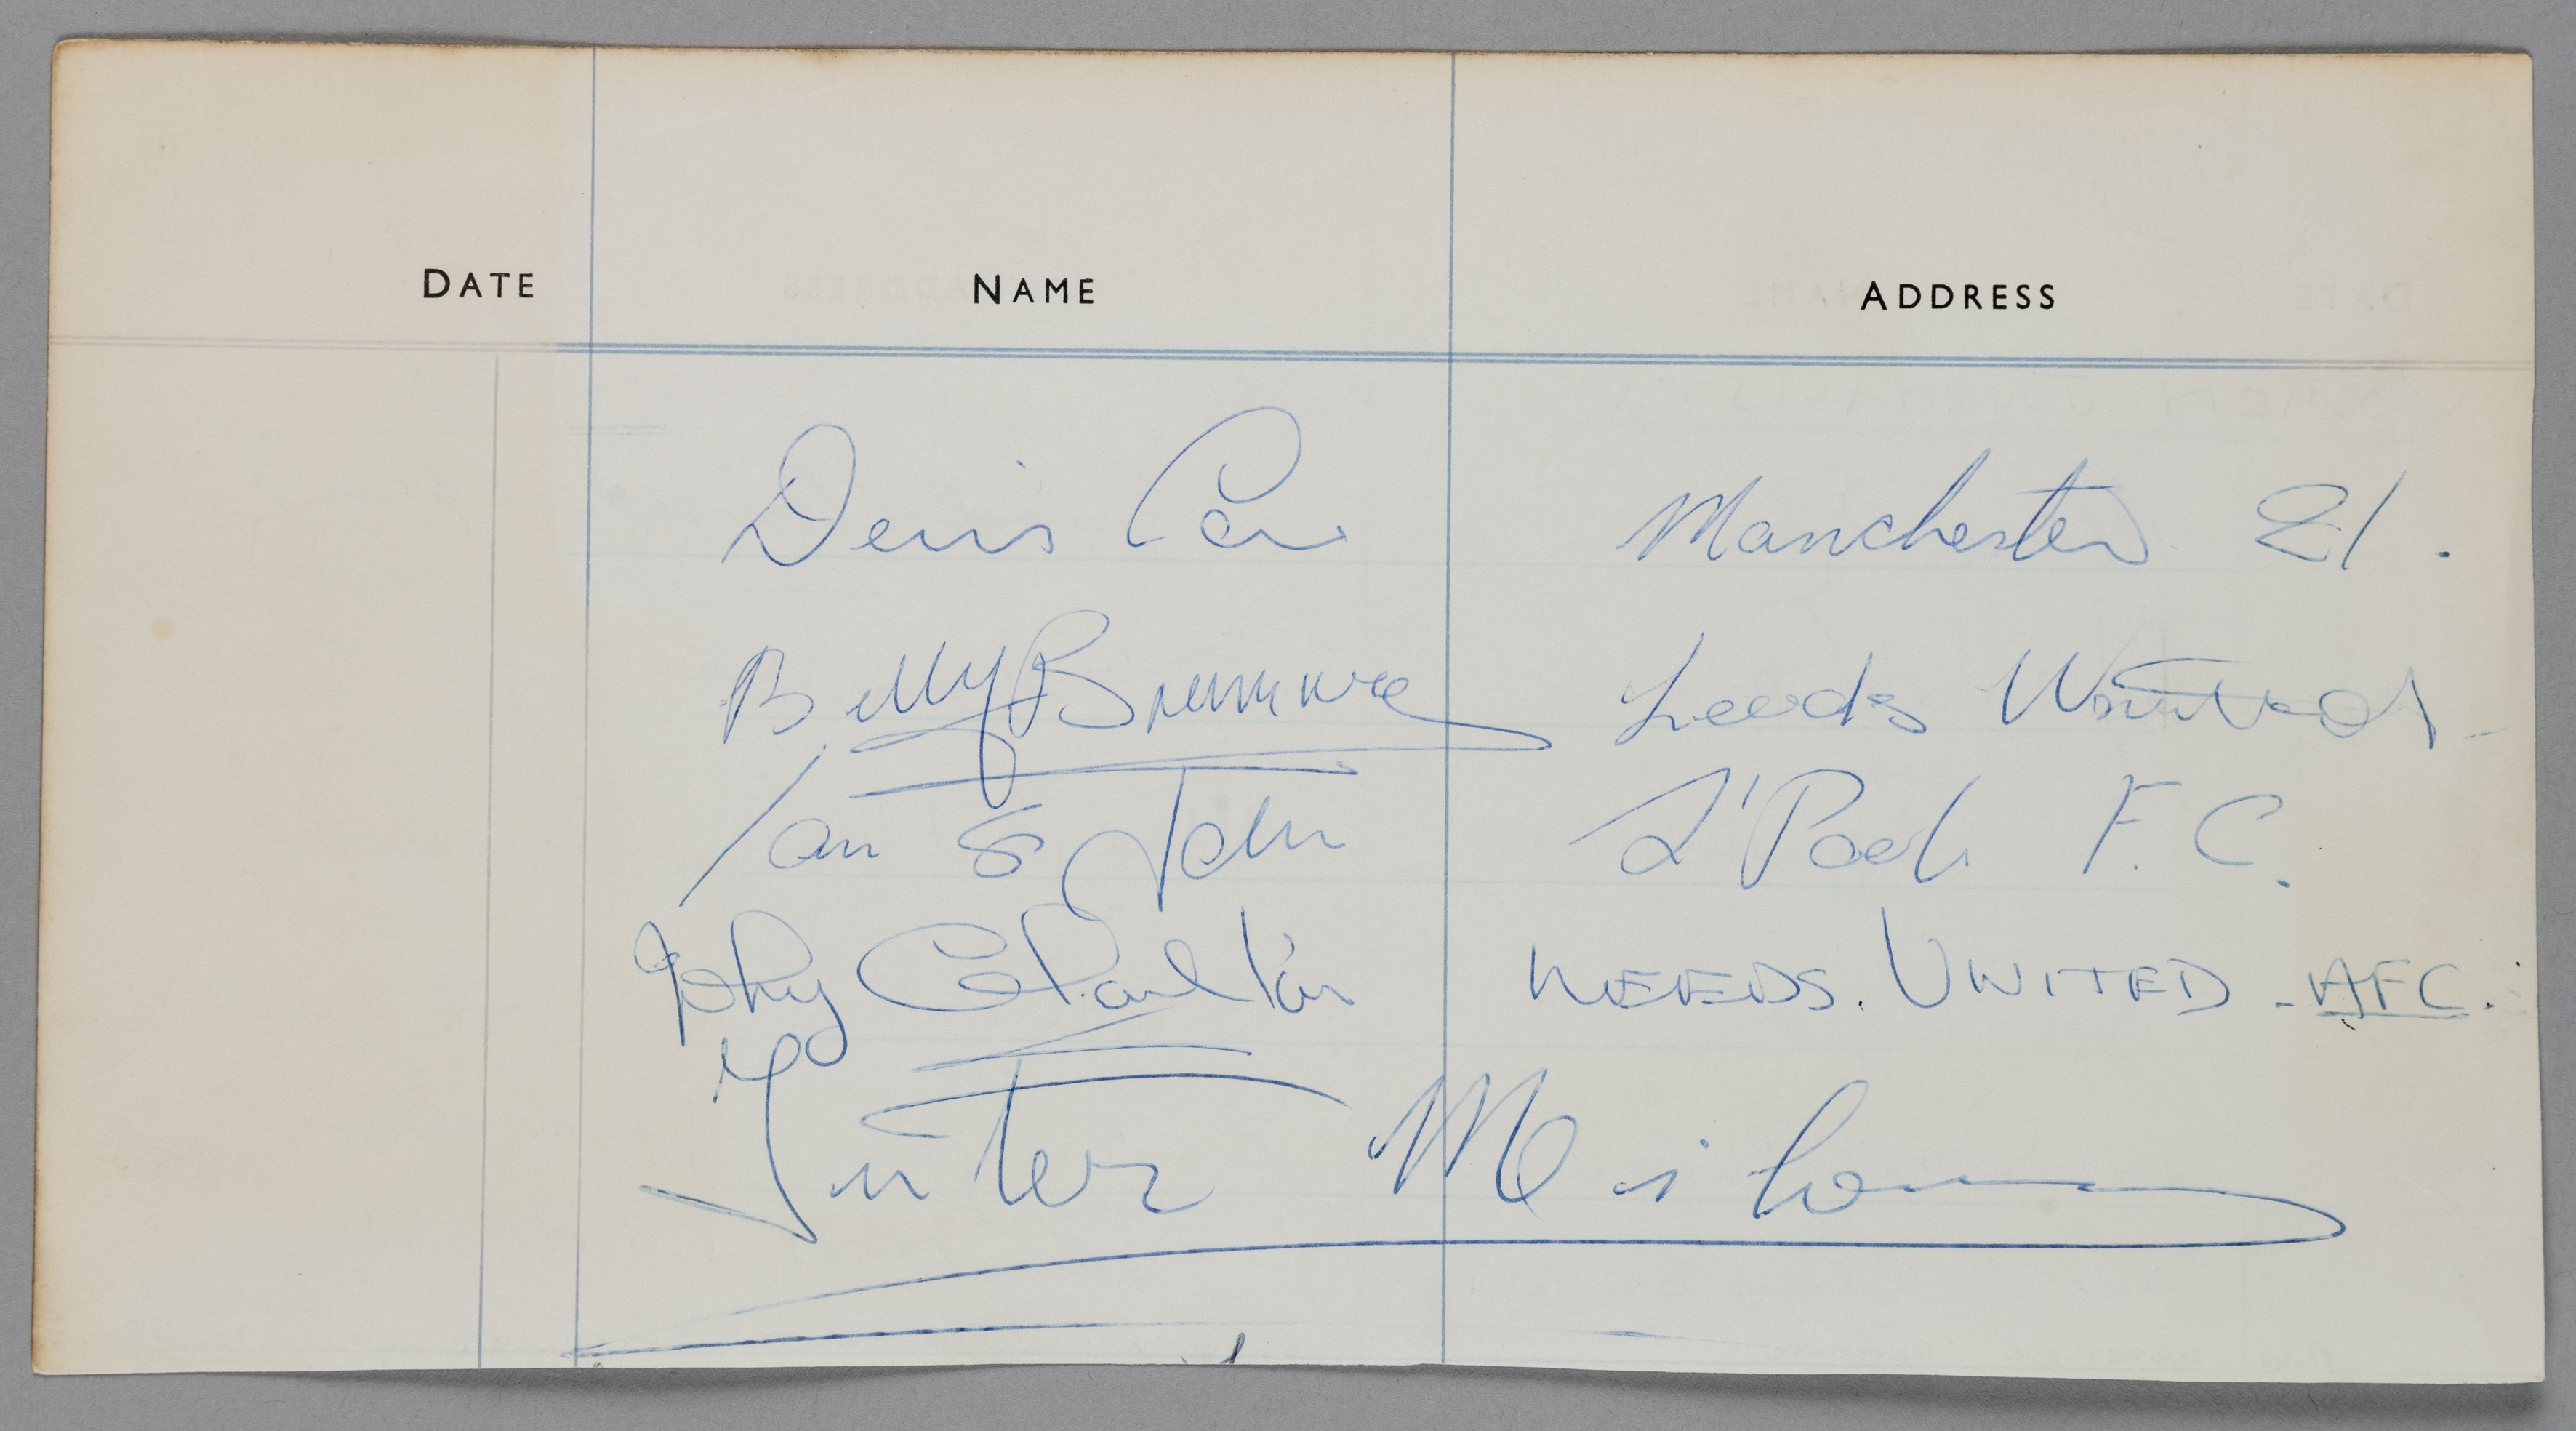 DATE NAME ADDRESS
Denis Law Manchester 21.
Billy Bremner Leeds United
Ian St John L'Pool F.C.
Charlton LEEDS. UNITED - AFC.
Inter Milan